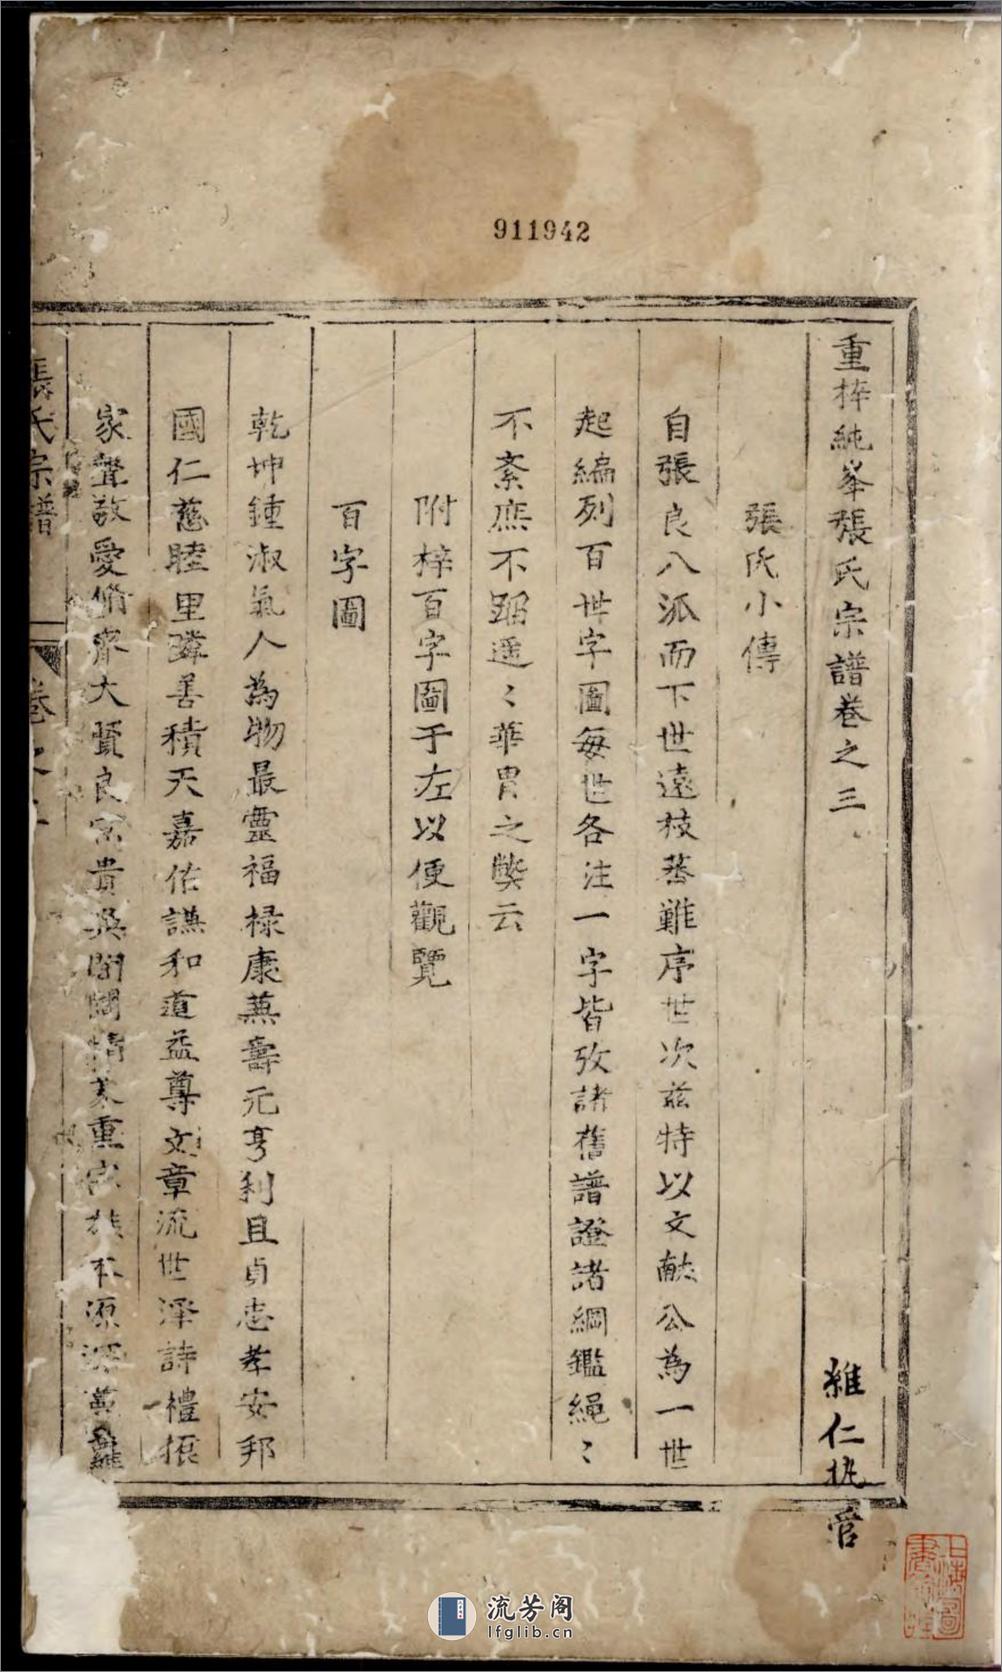 911942
重梓純峯張氏宗譜卷之三
雑仁批 管
張氏小傳
自張良八派而下世遠枝蕃難序世次茲特以文献公為一世
起編列百世字圖每世各注一字皆攷諸舊譜證諸綱鑑繩〻
不紊庶不蹈遥〻華胄之獘云
附梓百字圖于左以便觀覽
百字圖
乾坤鍾淑氣人為物最靈福禄康蕪壽元亨利且貞忠孝安邦
國仁慈睦里鄰善積天嘉佑謙和道益尊文章流世澤詩禮振
家聲敬愛脩齊大賢良富貴吳閭閻情義重宗族本源深
張氏宗譜
卷之
上海圖書館
流芳阁
lfglib.cn